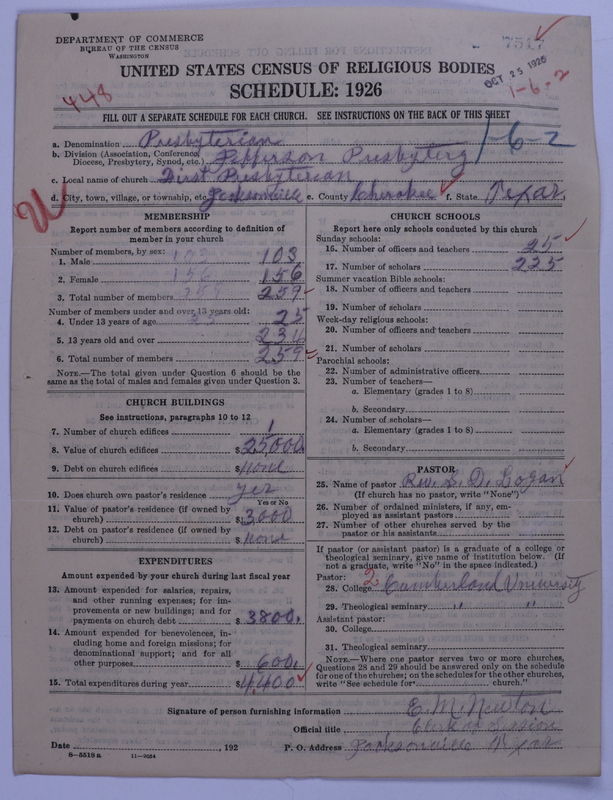 DEPARTMENT OF COMMERCE
BUREAU OF THE CENSUS
WASHINGTON
7517
OCT 25 1926
1-6-2
UNITED STATES CENSUS OF RELIGIOUS BODIES
SCHEDULE: 1926
448
FILL OUT A SEPARATE SCHEDULE FOR EACH CHURCH. SEE INSTRUCTIONS ON THE BACK OF THIS SHEET
1-6-2
a. Denomination Presbyterian
b. Division (Association, Conference, Diocese, Presbytery, Synod, etc.) Jefferson Presbytery
c. Local name of church First Presbyterian
d. City, town, village, or township, etc. Jacksonville e. County Cherokee f. State Texas
MEMBERSHIP
Report number of members according to definition of
member in your church
Number of members, by sex:
1. Male 103
2. Female 156
3. Total number of members 259
Number of members under and over 13 years old:
4. Under 13 years of age 25
5. 13 years old and over 234
6. Total number of members 259
NOTE.—The total given under Question 6 should be
same as the total of males and females given under Question 3.
CHURCH BUILDINGS
See instructions, paragraphs 10 to 12
7. Number of church edifices 1
8. Value of church edifices $25,000
9. Debt on church edifices $none
10. Does church own pastor's residence yes
Yes or No
11. Value of pastor's residence (if owned by
church) $3,000
12. Debt on pastor's residence (if owned by
church) $none
EXPENDITURES
Amount expended by your church during last fiscal year
13. Amount expended for salaries, repairs,
and other running expenses; for im-
provements or new buildings; and for
payments on church debt $3800.
14. Amount expended for benevolences, in-
cluding home and foreign missions; for
denominational support; and for all
other purposes $600.
15. Total expenditures during year $4,400
CHURCH SCHOOLS
Report here only schools conducted by this church
Sunday schools:
16. Number of officers and teachers 25
17. Number of scholars 225
Summer vacation Bible schools:
18. Number of officers and teachers
19. Number of scholars
Week-day religious schools:
20. Number of officers and teachers
21. Number of scholars
Parochial schools:
22. Number of administrative officers
23. Number of teachers—
a. Elementary (grades 1 to 8)
b. Secondary
24. Number of scholars—
a. Elementary (grades 1 to 8)
b. Secondary
PASTOR
25. Name of pastor Rev. S. D. Logan
(If church has no pastor, write "None")
26. Number of ordained ministers, if any, em-
ployed as assistant pastors
27. Number of other churches served by the
pastor or his assistants
If pastor (or assistant pastor) is a graduate of a college or
theological seminary, give name of institution below. (If
not a graduate, write "No" in the space indicated.)
Pastor:
28. College 2 Cumberland University
29. Theological seminary " "
Assistant pastor:
30. College
31. Theological seminary
NOTE.—Where one pastor serves two or more churches,
Questions 28 and 29 should be answered only on the schedule
for one of the churches; on the schedules for the other churches,
write "See schedule for church."
Signature of person furnishing information E. M. Newton
Official title Clerk of Session
Date , 192 P. O. Address Jacksonville Texas
8—5518a 11—9034